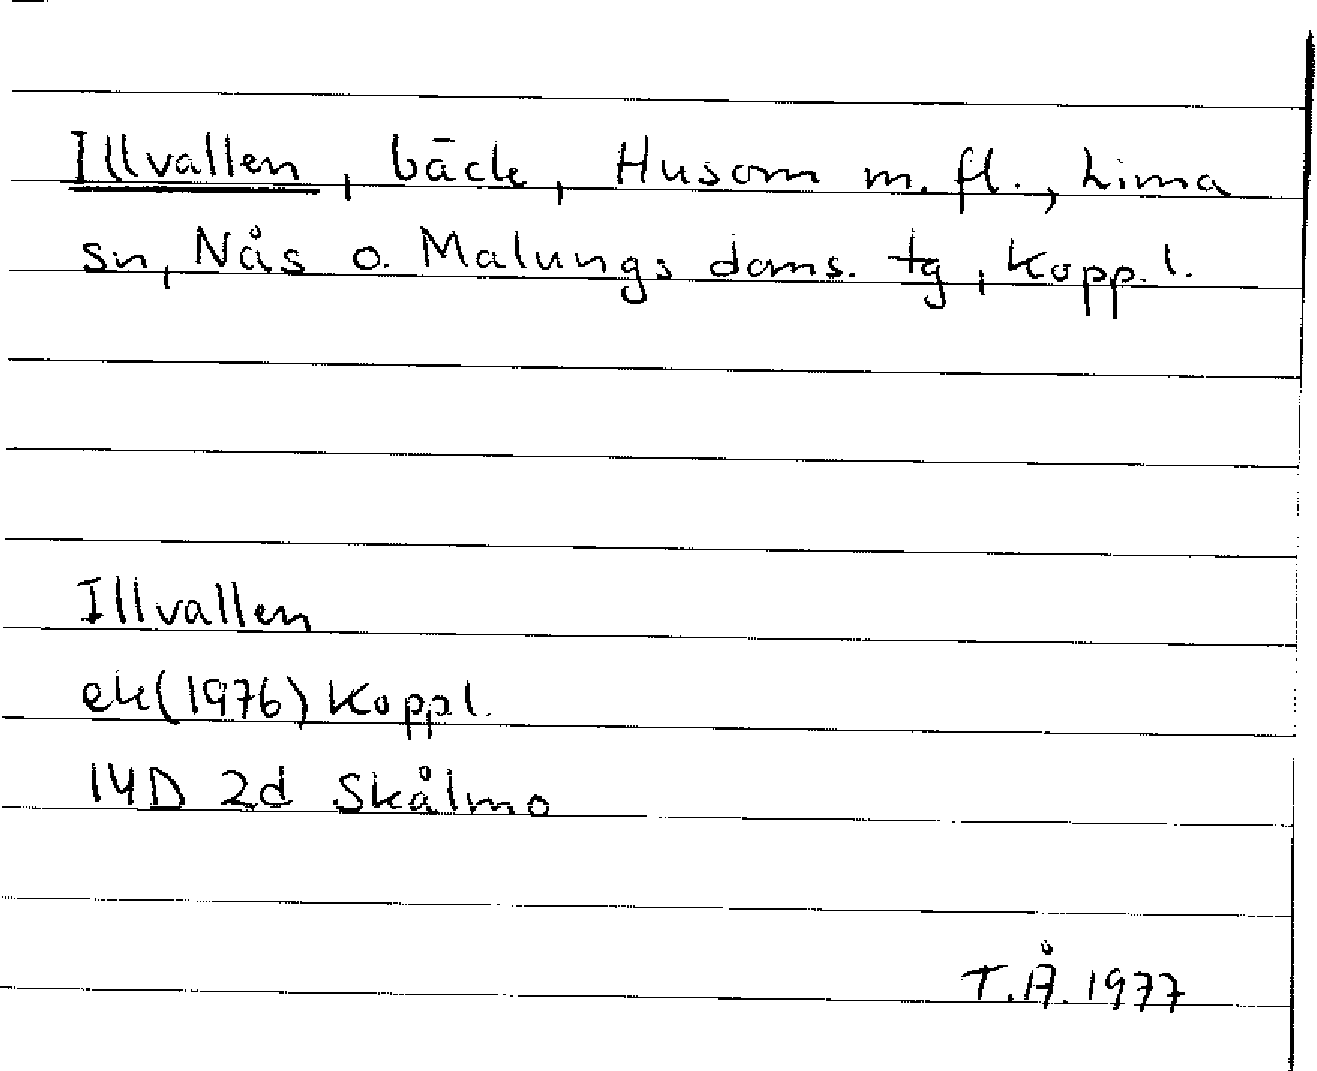 Illvallen, bäck, Husom m. fl., Lima
sn, Nås o. Malungs doms. tg, Kopp. l.
Illvallen
ek(1976) Koppl.
14D 2d Skålmo
T.Å. 1977